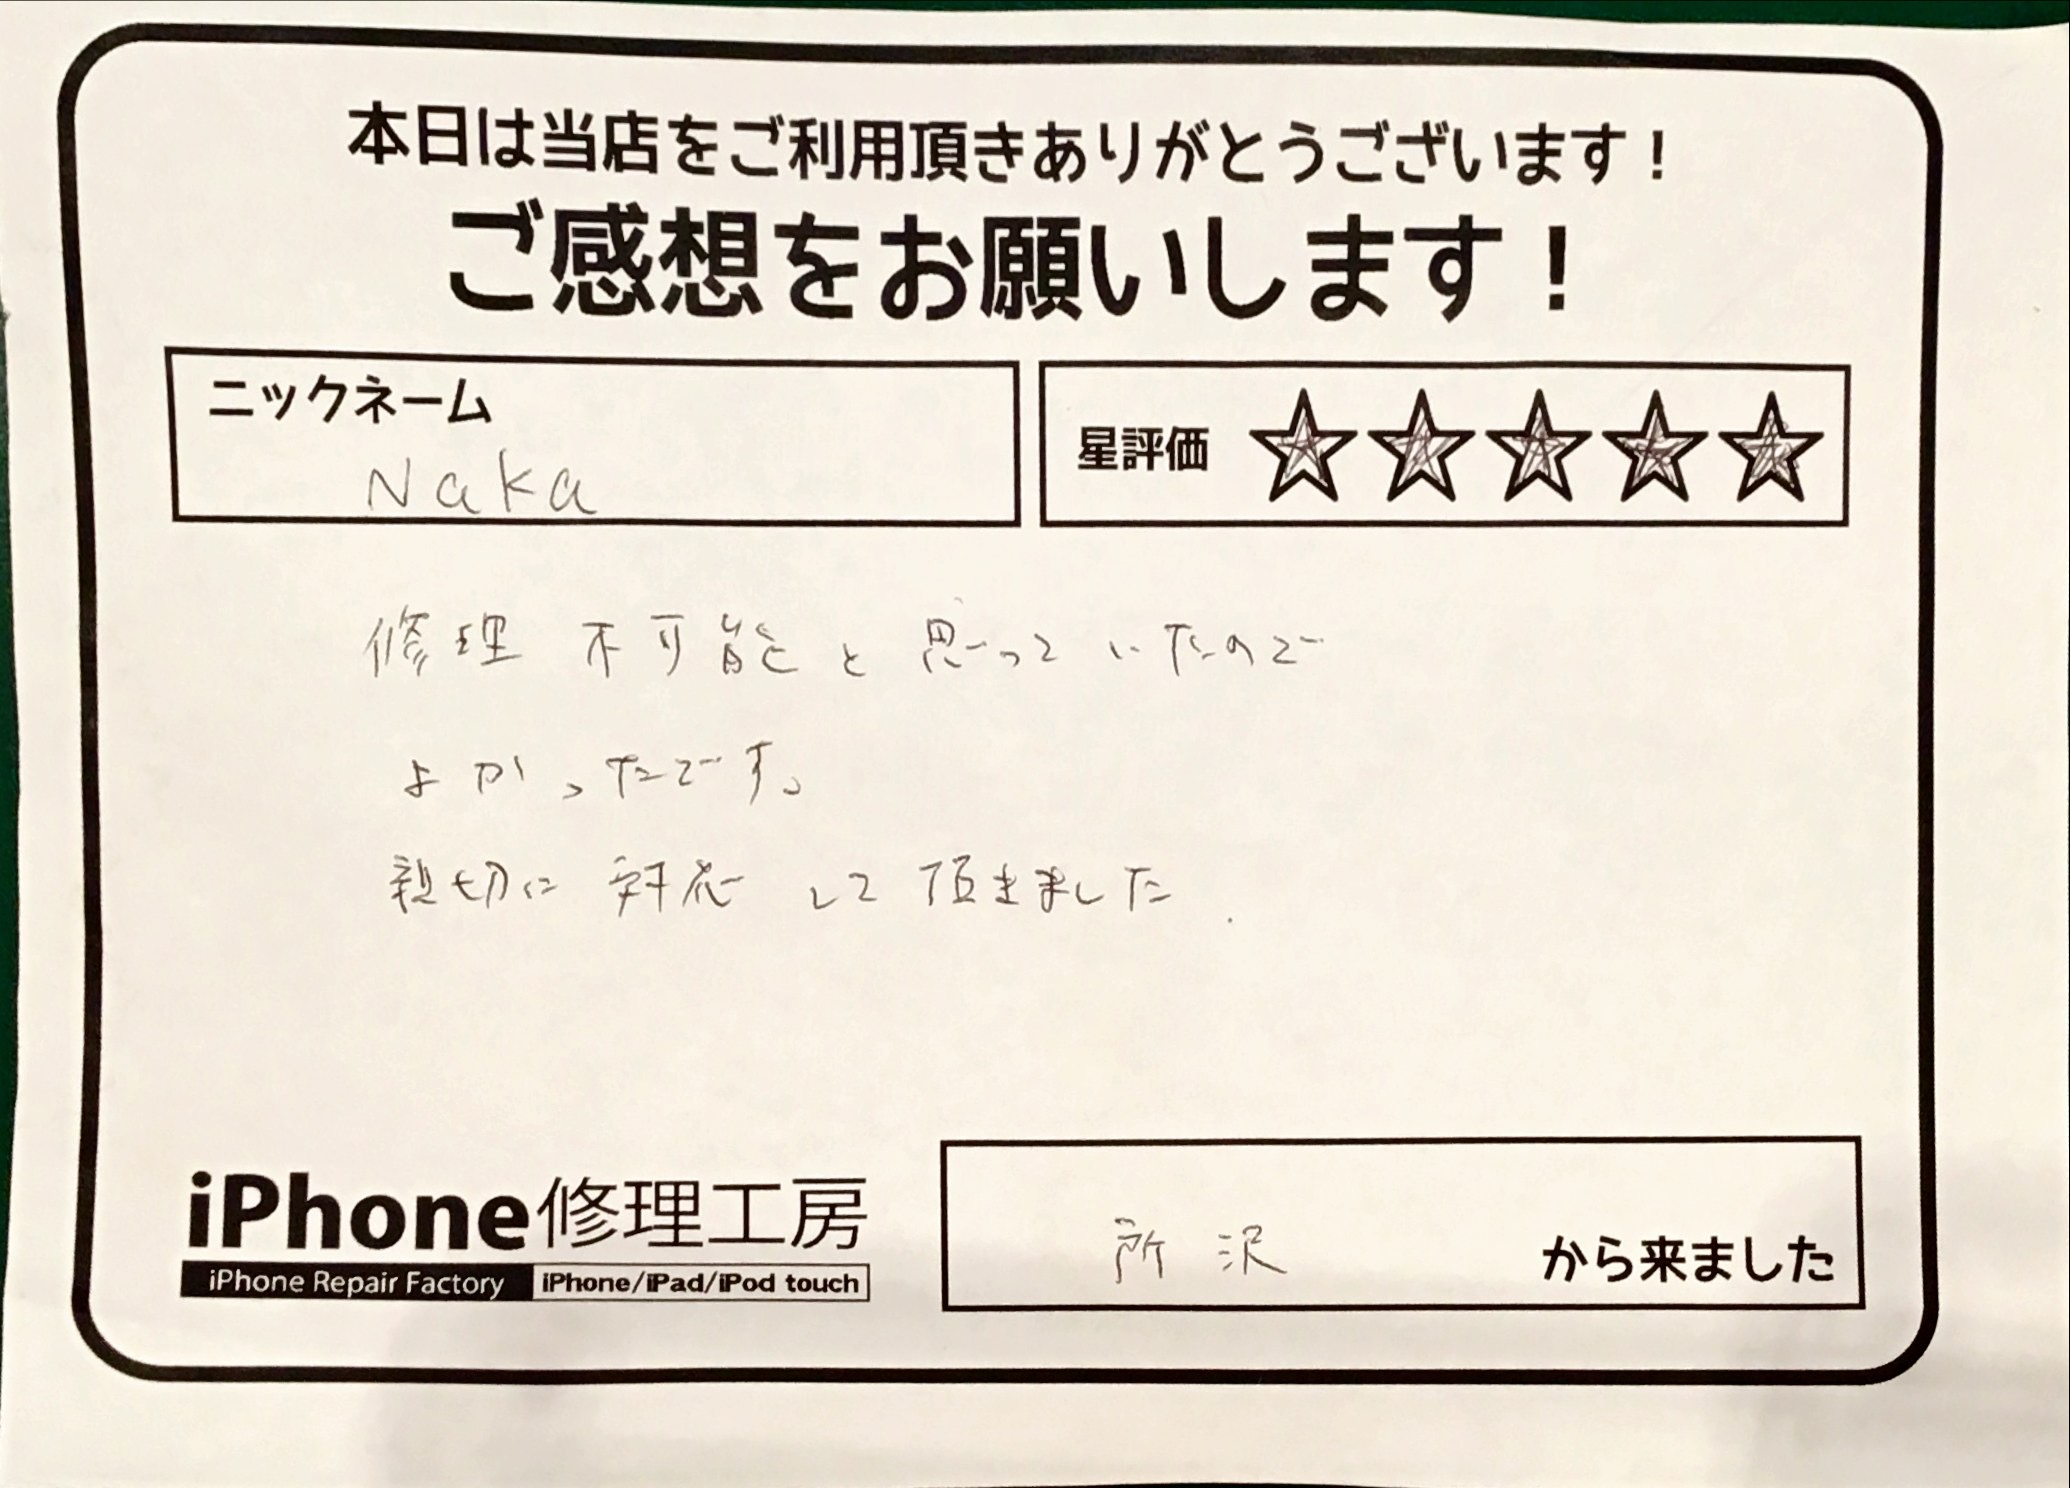 本日は当店をご利用頂きありがとうございます！
ご感想をお願いします！
ニックネーム
Naka
星評価 ☆☆☆☆☆
修理不可能と思っていたので
よかったです。
親切に対応して頂きました.
iPhone修理工房
iPhone Repair Factory iPhone/iPad/iPod touch
所沢 から来ました